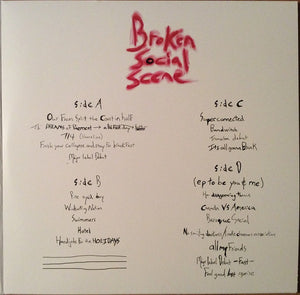 Broken
Social
Scene
Side A
Our Faces Split the Coast in half
7/4 (Shoreline)
Finish your Collapse and Stay for breakfast
Major label Debut
Side B
Fire eye'd boy
Windsurfing Nation
Swimmers
Hotel
Handjobs for the HOLIDAYS
Side C
Superconnected
Bandwitch
Tremoloa debut
It's all gonna Break
Side D
(ep to be you & me)
Her disappearing theme
Canada Vs America
Baroque Social
all my friends
Major label Debut - Fast -
Feel good lost reprise